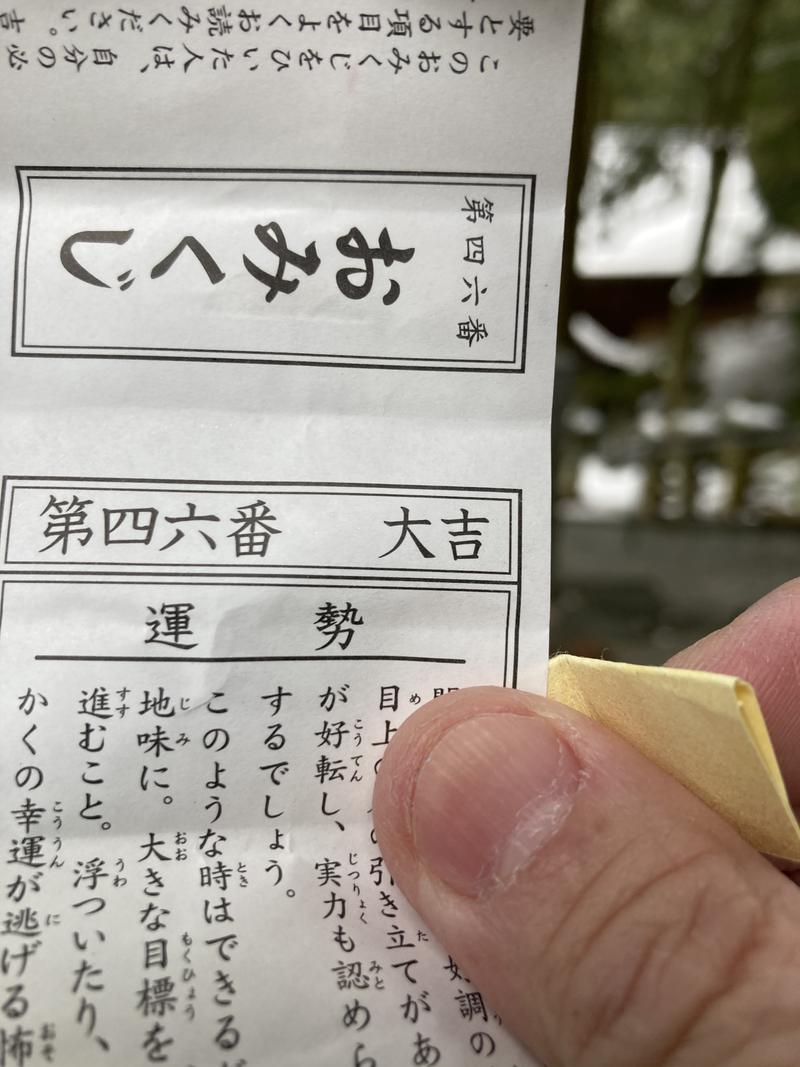 このおみくじをひいた人は、自分の必
要とする項目をよくお読みください。吉
第四六番
おみくじ
第四六番 大吉
運勢
調の
目上の引き立てがあ
が好転し、実力も認めら
するでしょう。
このような時はできるだ
地味に。大きな目標を
進むこと。浮ついたり、
かくの幸運が逃げる怖